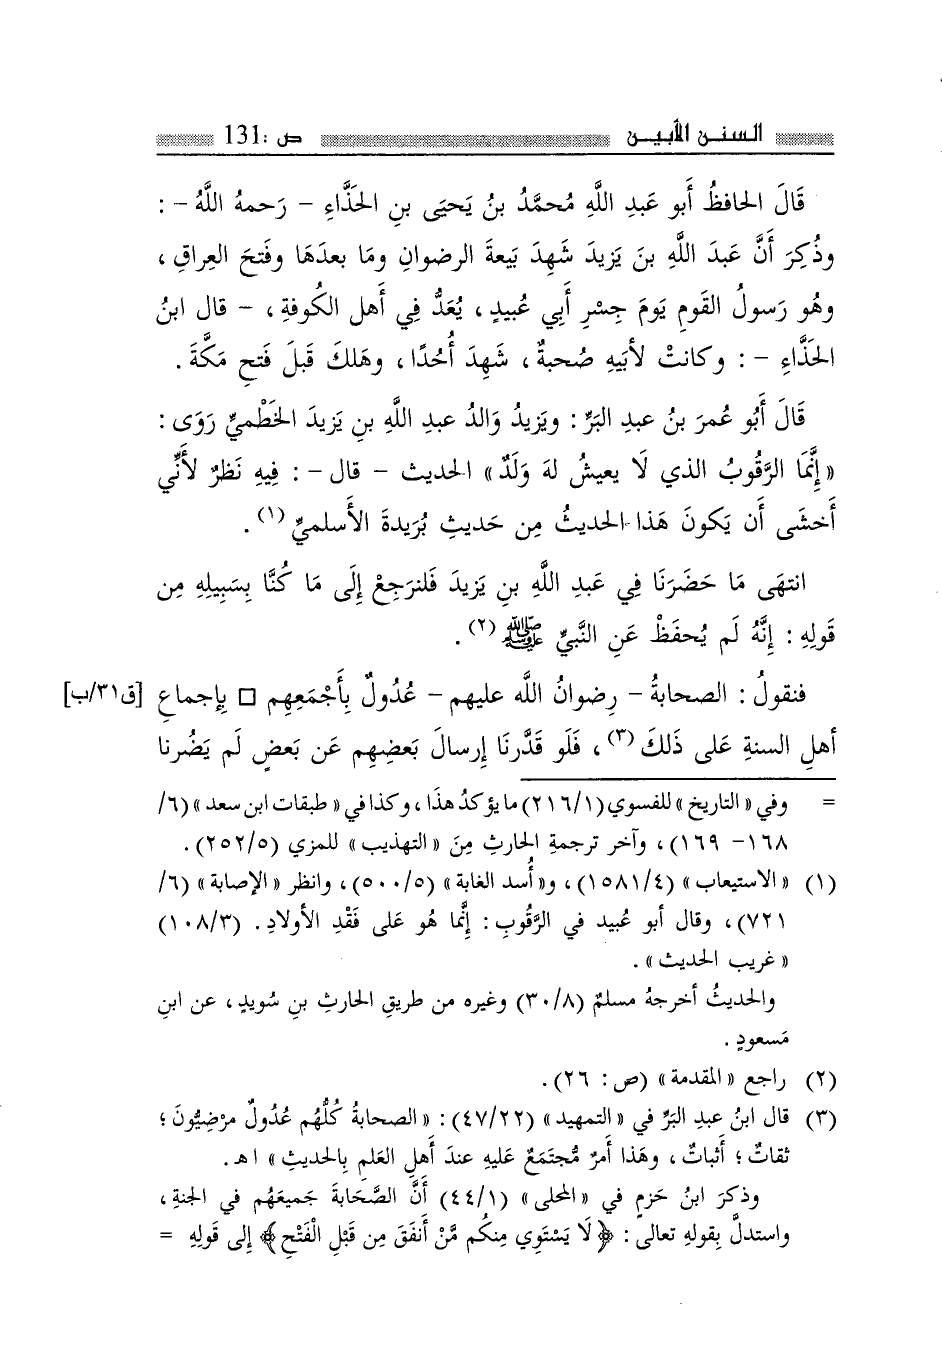 السنن الأبين ص :131
قَالَ الحافظُ أَبو عَبدِ اللَّهِ مُحمَّدُ بنُ يَحيَى بنِ الحَذَّاءِ – رَحمهُ اللَّهُ – :
وذُكِرَ أَنَّ عَبدَ اللَّهِ بنَ يَزيدَ شَهِدَ بَيعةَ الرضوانِ ومَا بعدَهَا وفَتحَ العِراقِ ،
وهُو رَسولُ القَومِ يَومَ جِسْرِ أَبِي عُبيدٍ ، يُعَدُّ فِي أَهلِ الكُوفةِ ، – قال ابنُ
الحَذَّاءِ – : وكانتْ لأَبيَهِ صُحبةٌ ، شَهِدَ أُحُدًا ، وهَلكَ قَبلَ فَتحِ مَكَّةَ .
قَالَ أَبُو عُمرَ بنُ عبدِ البَرِّ : ويَزيدُ وَالدُ عبدِ اللَّهِ بنِ يَزيدَ الخَطْميِّ رَوَى :
« إِنَّمَا الرَّقُوبُ الذي لَا يعيشُ لهَ وَلَدٌ » الحديث – قال – : فِيهِ نَظرٌ لأَنِّي
أَخشَى أَن يَكونَ هَذا الحديثُ مِن حَديثِ بُرَيدةَ الأَسلميِّ (١) .
انتهَى مَا حَضَرَنَا فِي عَبدِ اللَّهِ بنِ يَزيدَ فَلنرَجِعْ إِلَى مَا كُنَّا بِسَبِيلِهِ مِن
قَولِهِ : إِنَّهُ لَم يُحفَظْ عَنِ النَّبيِّ ﷺ (٢) .
فنقولُ : الصحابةُ – رِضوانُ اللَّه عليهم – عُدُولٌ بِأَجْمَعِهِم □ بِإجماعِ [ق٣١/ب]
أَهلِ السنةِ عَلى ذَلكَ (٣) ، فَلَو قَدَّرنَا إِرسالَ بَعضِهِم عَن بَعضٍ لَم يَضُرنا
= وفي « التاريخ » للفسوي (٢١٦/١) ما يؤكدُ هذَا ، وكذا في « طبقات ابن سعد » (٦/
١٦٨– ١٦٩) ، وآخر ترجمةِ الحارثِ مِنَ « التهذيب » للمزي (٢٥٢/٥) .
(١) « الاستيعاب » (١٥٨١/٤) ، و« أُسد الغابة » (٥٠٠/٥) ، وانظر « الإصابة » (٦/
٧٢١) ، وقال أبو عُبيد في الرَّقُوبِ : إِنَّما هُو عَلى فَقْدِ الأولادِ . (١٠٨/٣)
« غريب الحديث » .
والحديثُ أخرجهُ مسلمٌ (٣٠/٨) وغيره من طريقِ الحارثِ بنِ سُويدٍ ، عن ابنِ
مَسعودٍ .
(٢) راجع « المقدمة » (ص : ٢٦) .
(٣) قال ابنُ عبدِ البَرِّ في « التمهيد » (٤٧/٢٢) : « الصحابةُ كُلُّهُم عُدُولٌ مرْضِيُّونَ ؛
ثقاتٌ ؛ أَثباتٌ ، وهَذا أَمرٌ مُجتَمَعٌ عَليهِ عندَ أَهلِ العَلمِ بِالحديثِ » اهـ.
وذكرَ ابنُ حَزمٍ في « المحلى » (٤٤/١) أَنَّ الصَّحَابةَ جَميعَهُم في الجنةِ ،
واستدلَّ بِقولهِ تعالى : ﴿ لَا يَسْتَوِي مِنكُم مَّنْ أَنفَقَ مِن قَبْلِ الْفَتْحِ ﴾ إِلى قَولِهِ =